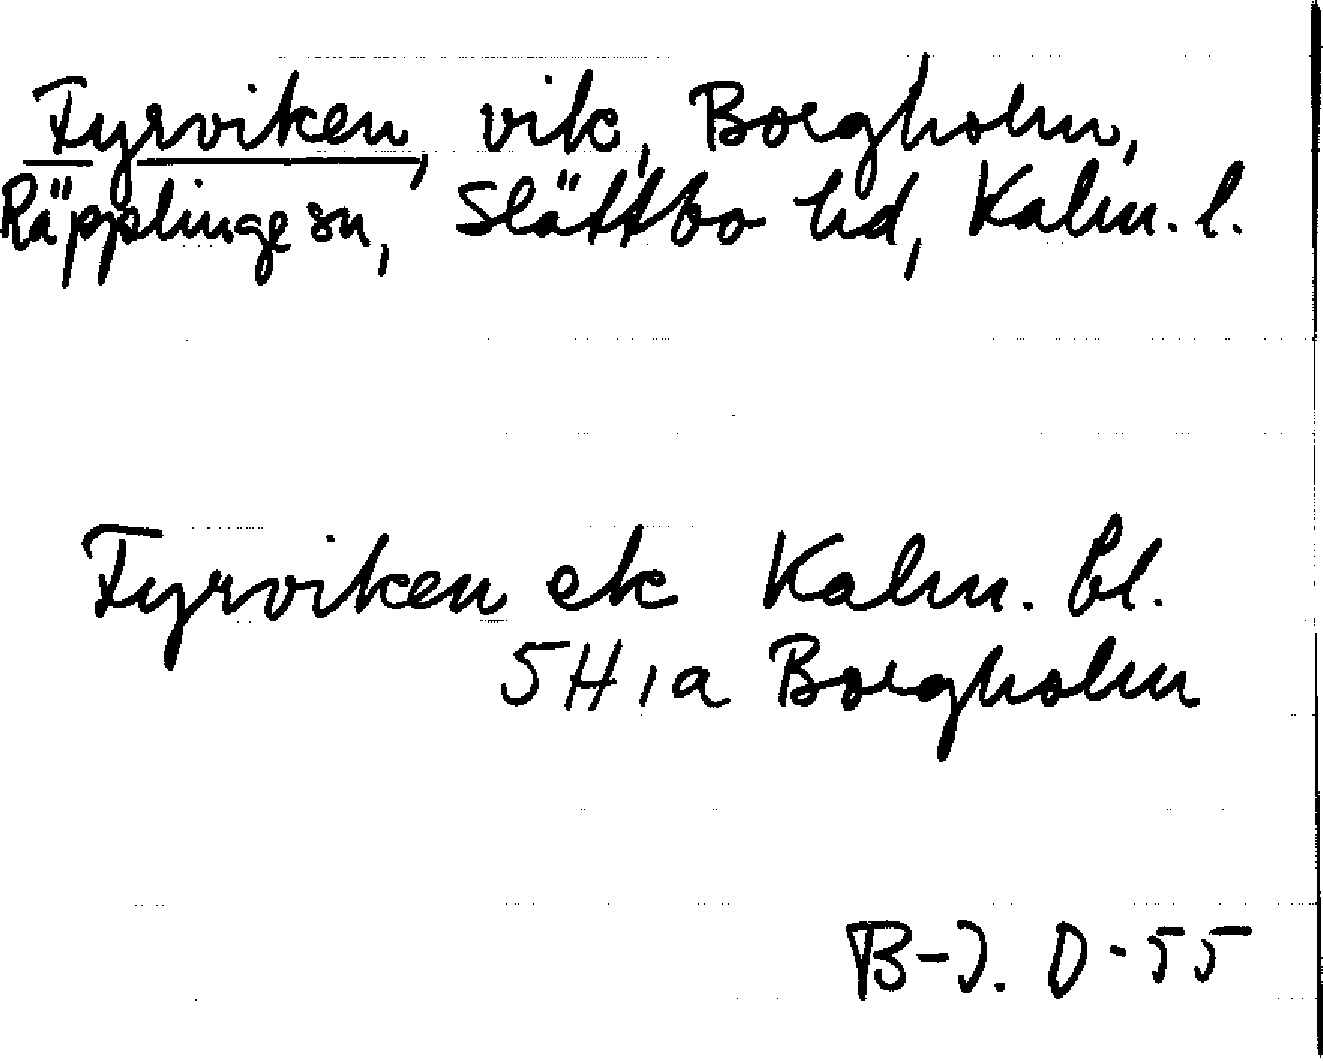 Fyrviken, vik, Borgholm,
Räpplinge sn, Slättbo hd, Kalm. l.
Fyrviken ek Kalm. bl.
5H1a Borgholm
B-J. O-55